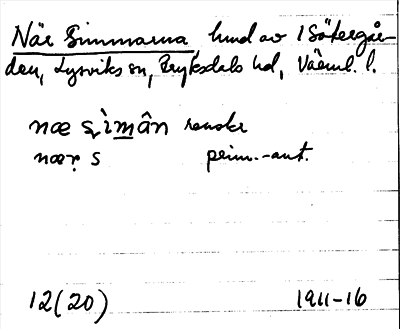 När Simmarna hmd av 1 Sätergår-
den, Lysviks sn, Fryksdals hd, Värml. l.
næ sìmân
næṛ s prim.-ant.
12(20) 1911-16